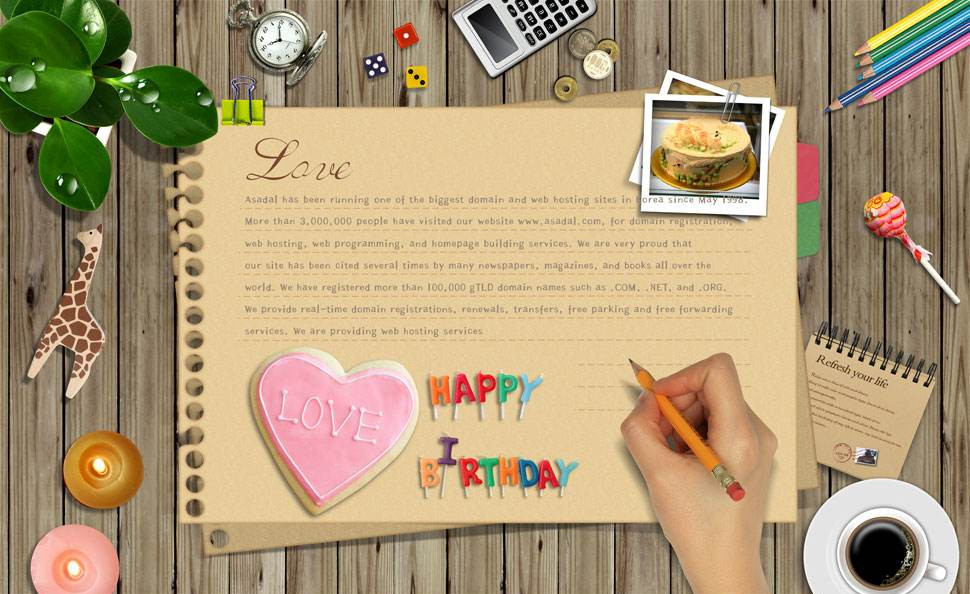 Love
Asadal has been running one of the biggest domain and web hosting sites in Korea since May 1998.
More than 3,000,000 people have visited our website www.asadal.com, for domain registration,
web hosting, web programming, and homepage building services. We are very proud that
our site has been cited several times by many newspapers, magazines, and books all over the
world. We have registered more than 100,000 gTLD domain names such as .COM, .NET, and .ORG.
We provide real-time domain registrations, renewals, transfers, free parking and free forwarding
services. We are providing web hosting services
LOVE
HAPPY
BIRTHDAY
Refresh your life